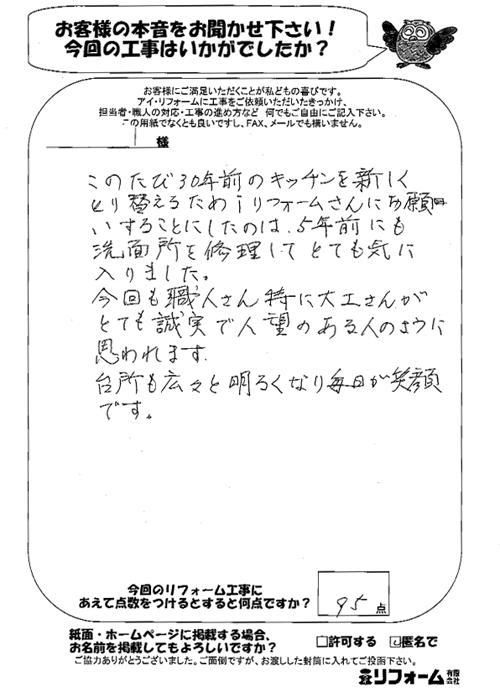 お客様の本音をお聞かせ下さい！
今回の工事はいかがでしたか？
お客様にご満足いただくことが私どもの喜びです。
アイ・リフォームに工事をご依頼いただいたきっかけ、
担当者・職人の対応・工事の進め方など 何でもご自由にご記入下さい。
この用紙でなくとも良いですし、FAX、メールでも構いません。
様
このたび30年前のキッチンを新しく
とり替えるためiリフォームさんにお願
いすることにしたのは、5年前にも
洗面所を修理してとても気に
入りました。
今回も職人さん特に大工さんが
とても誠実で人望のある人のように
思われます。
台所も広々と明るくなり毎日が笑顔
です。
今回のリフォーム工事に
あえて点数をつけるとすると何点ですか？
95点
紙面・ホームページに掲載する場合、
お名前を掲載してもよろしいですか？
□許可する ☑匿名で
ご協力ありがとうございました。ご面倒ですが、お渡しした封筒に入れてご投函下さい。
リフォーム 有限会社